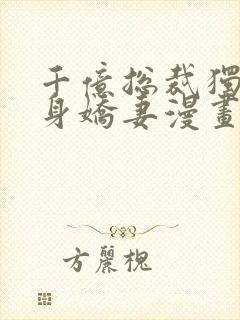 千億總裁獨
身嬌妻漫畫
方麗槐